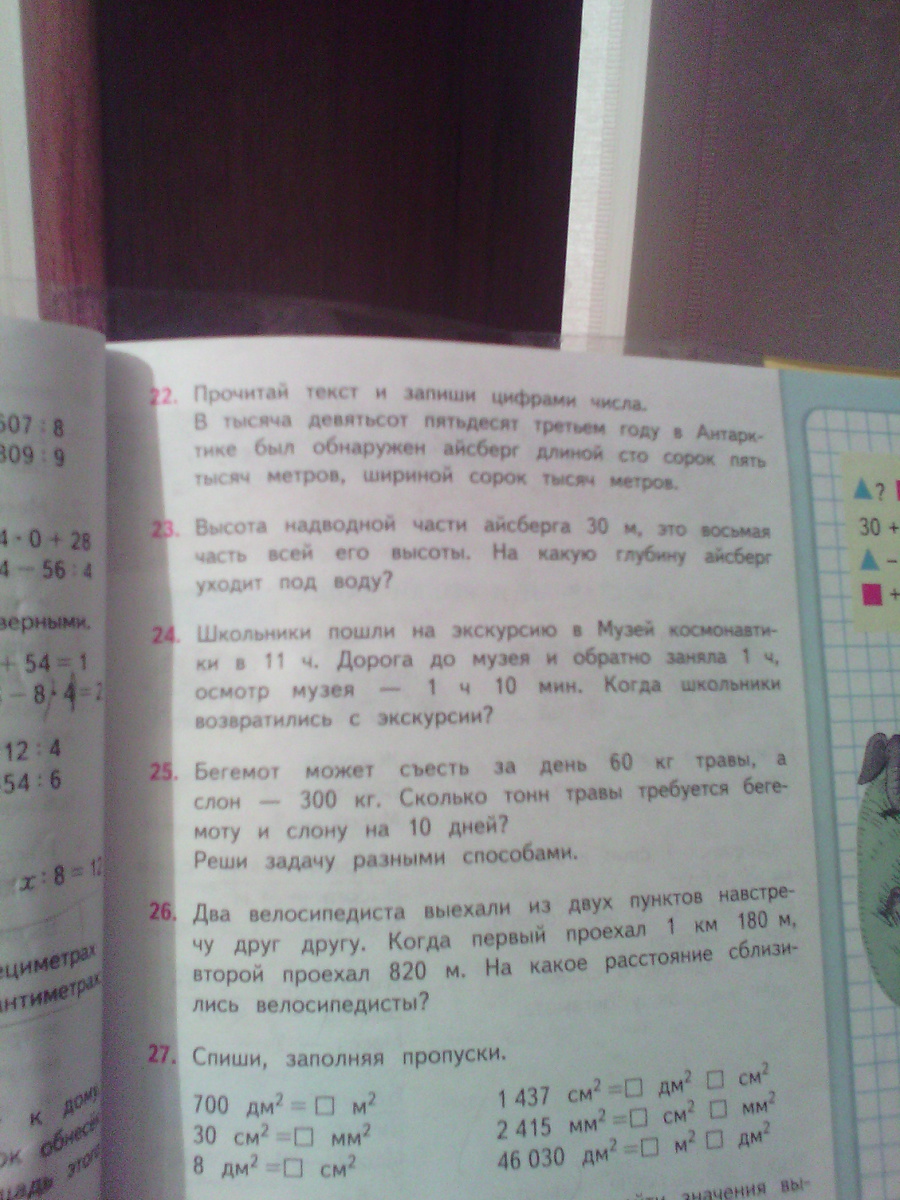 607 : 8
309 : 9
4 · 0 + 28
4 − 56 : 4
верными.
+ 54 = 1
− 8 · 4 = 2
12 : 4
54 : 6
x : 8 = 12
ециметрах
антиметрах
к дому
ок обнесё
щадь этого
22. Прочитай текст и запиши цифрами числа.
В тысяча девятьсот пятьдесят третьем году в Антарк-
тике был обнаружен айсберг длиной сто сорок пять
тысяч метров, шириной сорок тысяч метров.
23. Высота надводной части айсберга 30 м, это восьмая
часть всей его высоты. На какую глубину айсберг
уходит под воду?
24. Школьники пошли на экскурсию в Музей космонавти-
ки в 11 ч. Дорога до музея и обратно заняла 1 ч,
осмотр музея — 1 ч 10 мин. Когда школьники
возвратились с экскурсии?
25. Бегемот может съесть за день 60 кг травы, а
слон — 300 кг. Сколько тонн травы требуется беге-
моту и слону на 10 дней?
Реши задачу разными способами.
26. Два велосипедиста выехали из двух пунктов навстре-
чу друг другу. Когда первый проехал 1 км 180 м,
второй проехал 820 м. На какое расстояние сблизи-
лись велосипедисты?
27. Спиши, заполняя пропуски.
700 дм² = □ м²
30 см² = □ мм²
8 дм² = □ см²
1 437 см² = □ дм² □ см²
2 415 мм² = □ см² □ мм²
46 030 дм² = □ м² □ дм²
значения вы-
▲ ? ■
30 +
▲ −
■ +